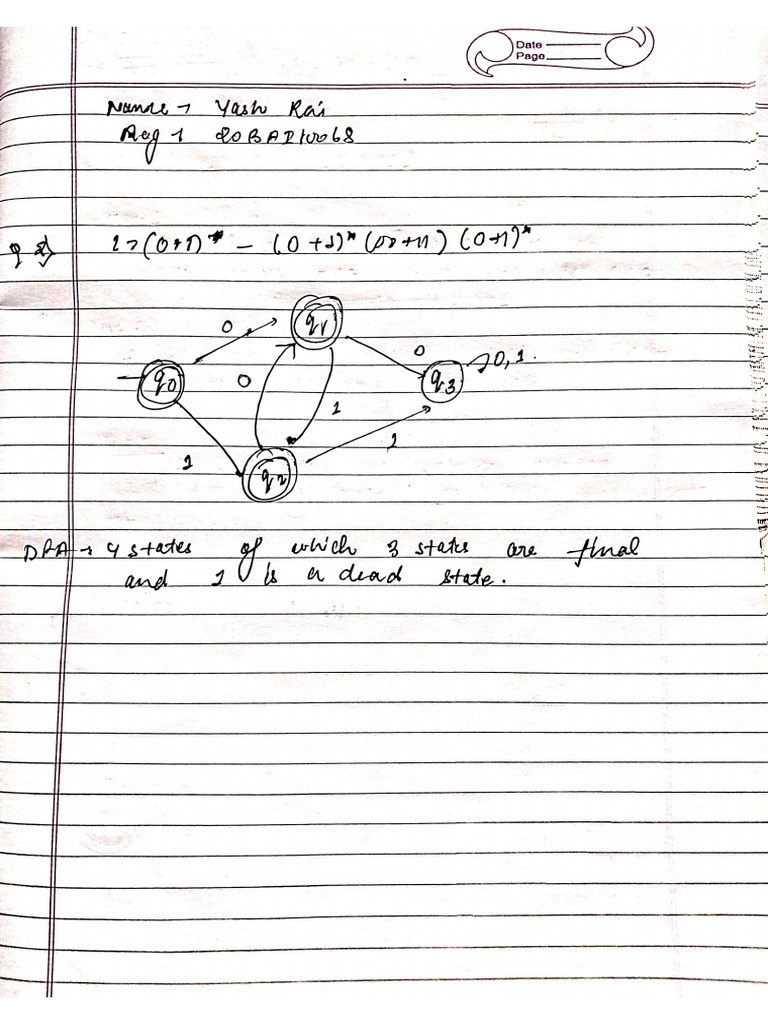 Date
Page
Name → Yash Rai
Reg → 20BAI10068
L = (0+1)* - (0+1)* (00+11) (0+1)*
0
q1
0
q0
0
q3
0,1.
1
1
1
q2
DFA → 4 states of which 3 states are final
and 1 is a dead state.